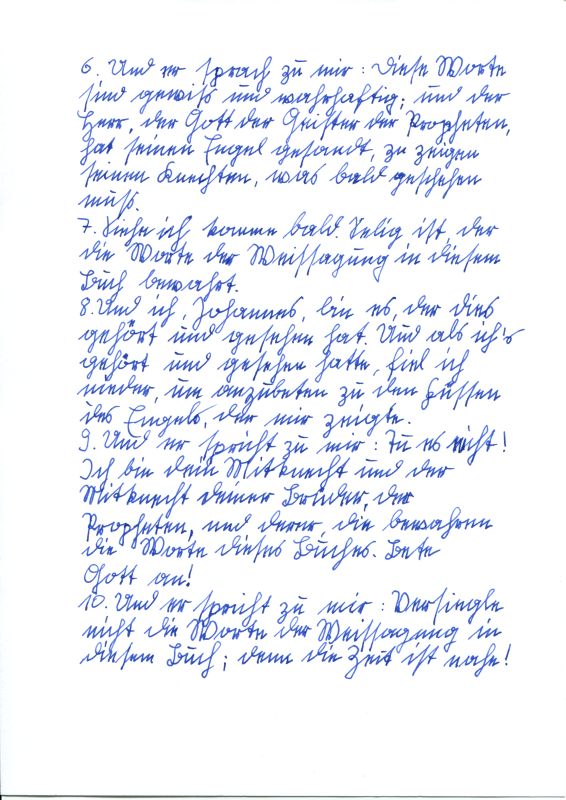 6. Und er sprach zu mir: Diese Worte
sind gewiß und wahrhaftig; und der
Herr, der Gott der Geister der Propheten,
hat seinen Engel gesandt, zu zeigen
seinen Knechten, was bald geschehen
muß.
7. Siehe ich komme bald. Selig ist, der
die Worte der Weissagung in diesem
Buch bewahrt.
8. Und ich, Johannes, bin es, der dies
gehört und gesehen hat. Und als ich's
gehört und gesehen hatte, fiel ich
nieder, um anzubeten zu den Füssen
des Engels, der mir zeigte.
9. Und er spricht zu mir: Tu es nicht!
Ich bin dein Mitknecht und der
Mitknecht deiner Brüder, der
Propheten, und derer, die bewahren
die Worte dieses Buches. Bete
Gott an!
10. Und er spricht zu mir: Versiegle
nicht die Worte der Weissagung in
diesem Buch; denn die Zeit ist nahe!